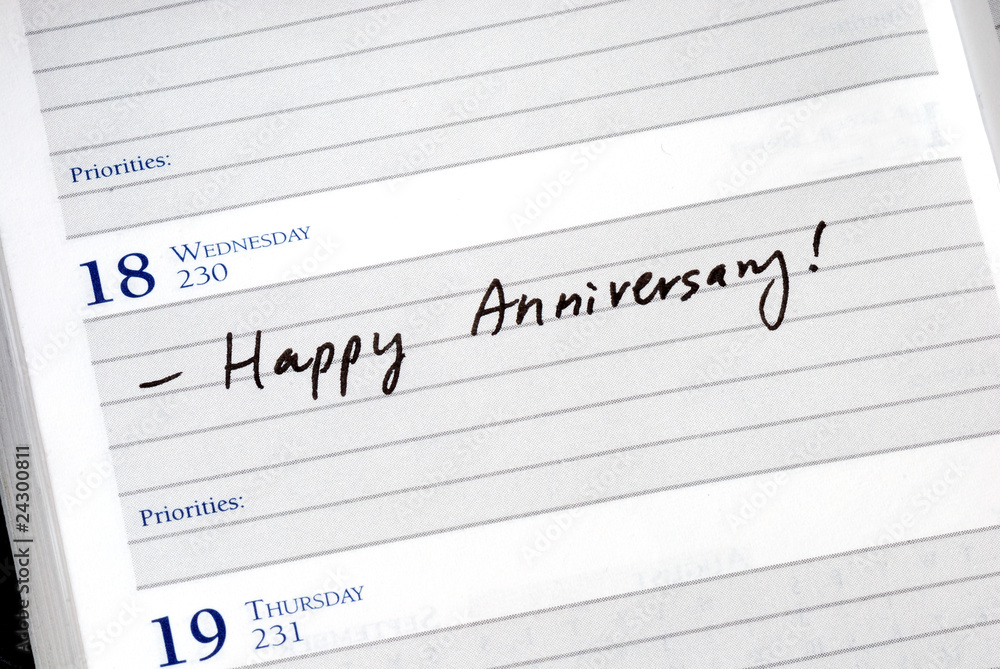 Priorities:
18 WEDNESDAY
230
- Happy Anniversary!
Priorities:
19 THURSDAY
231
Adobe Stock | #24300811